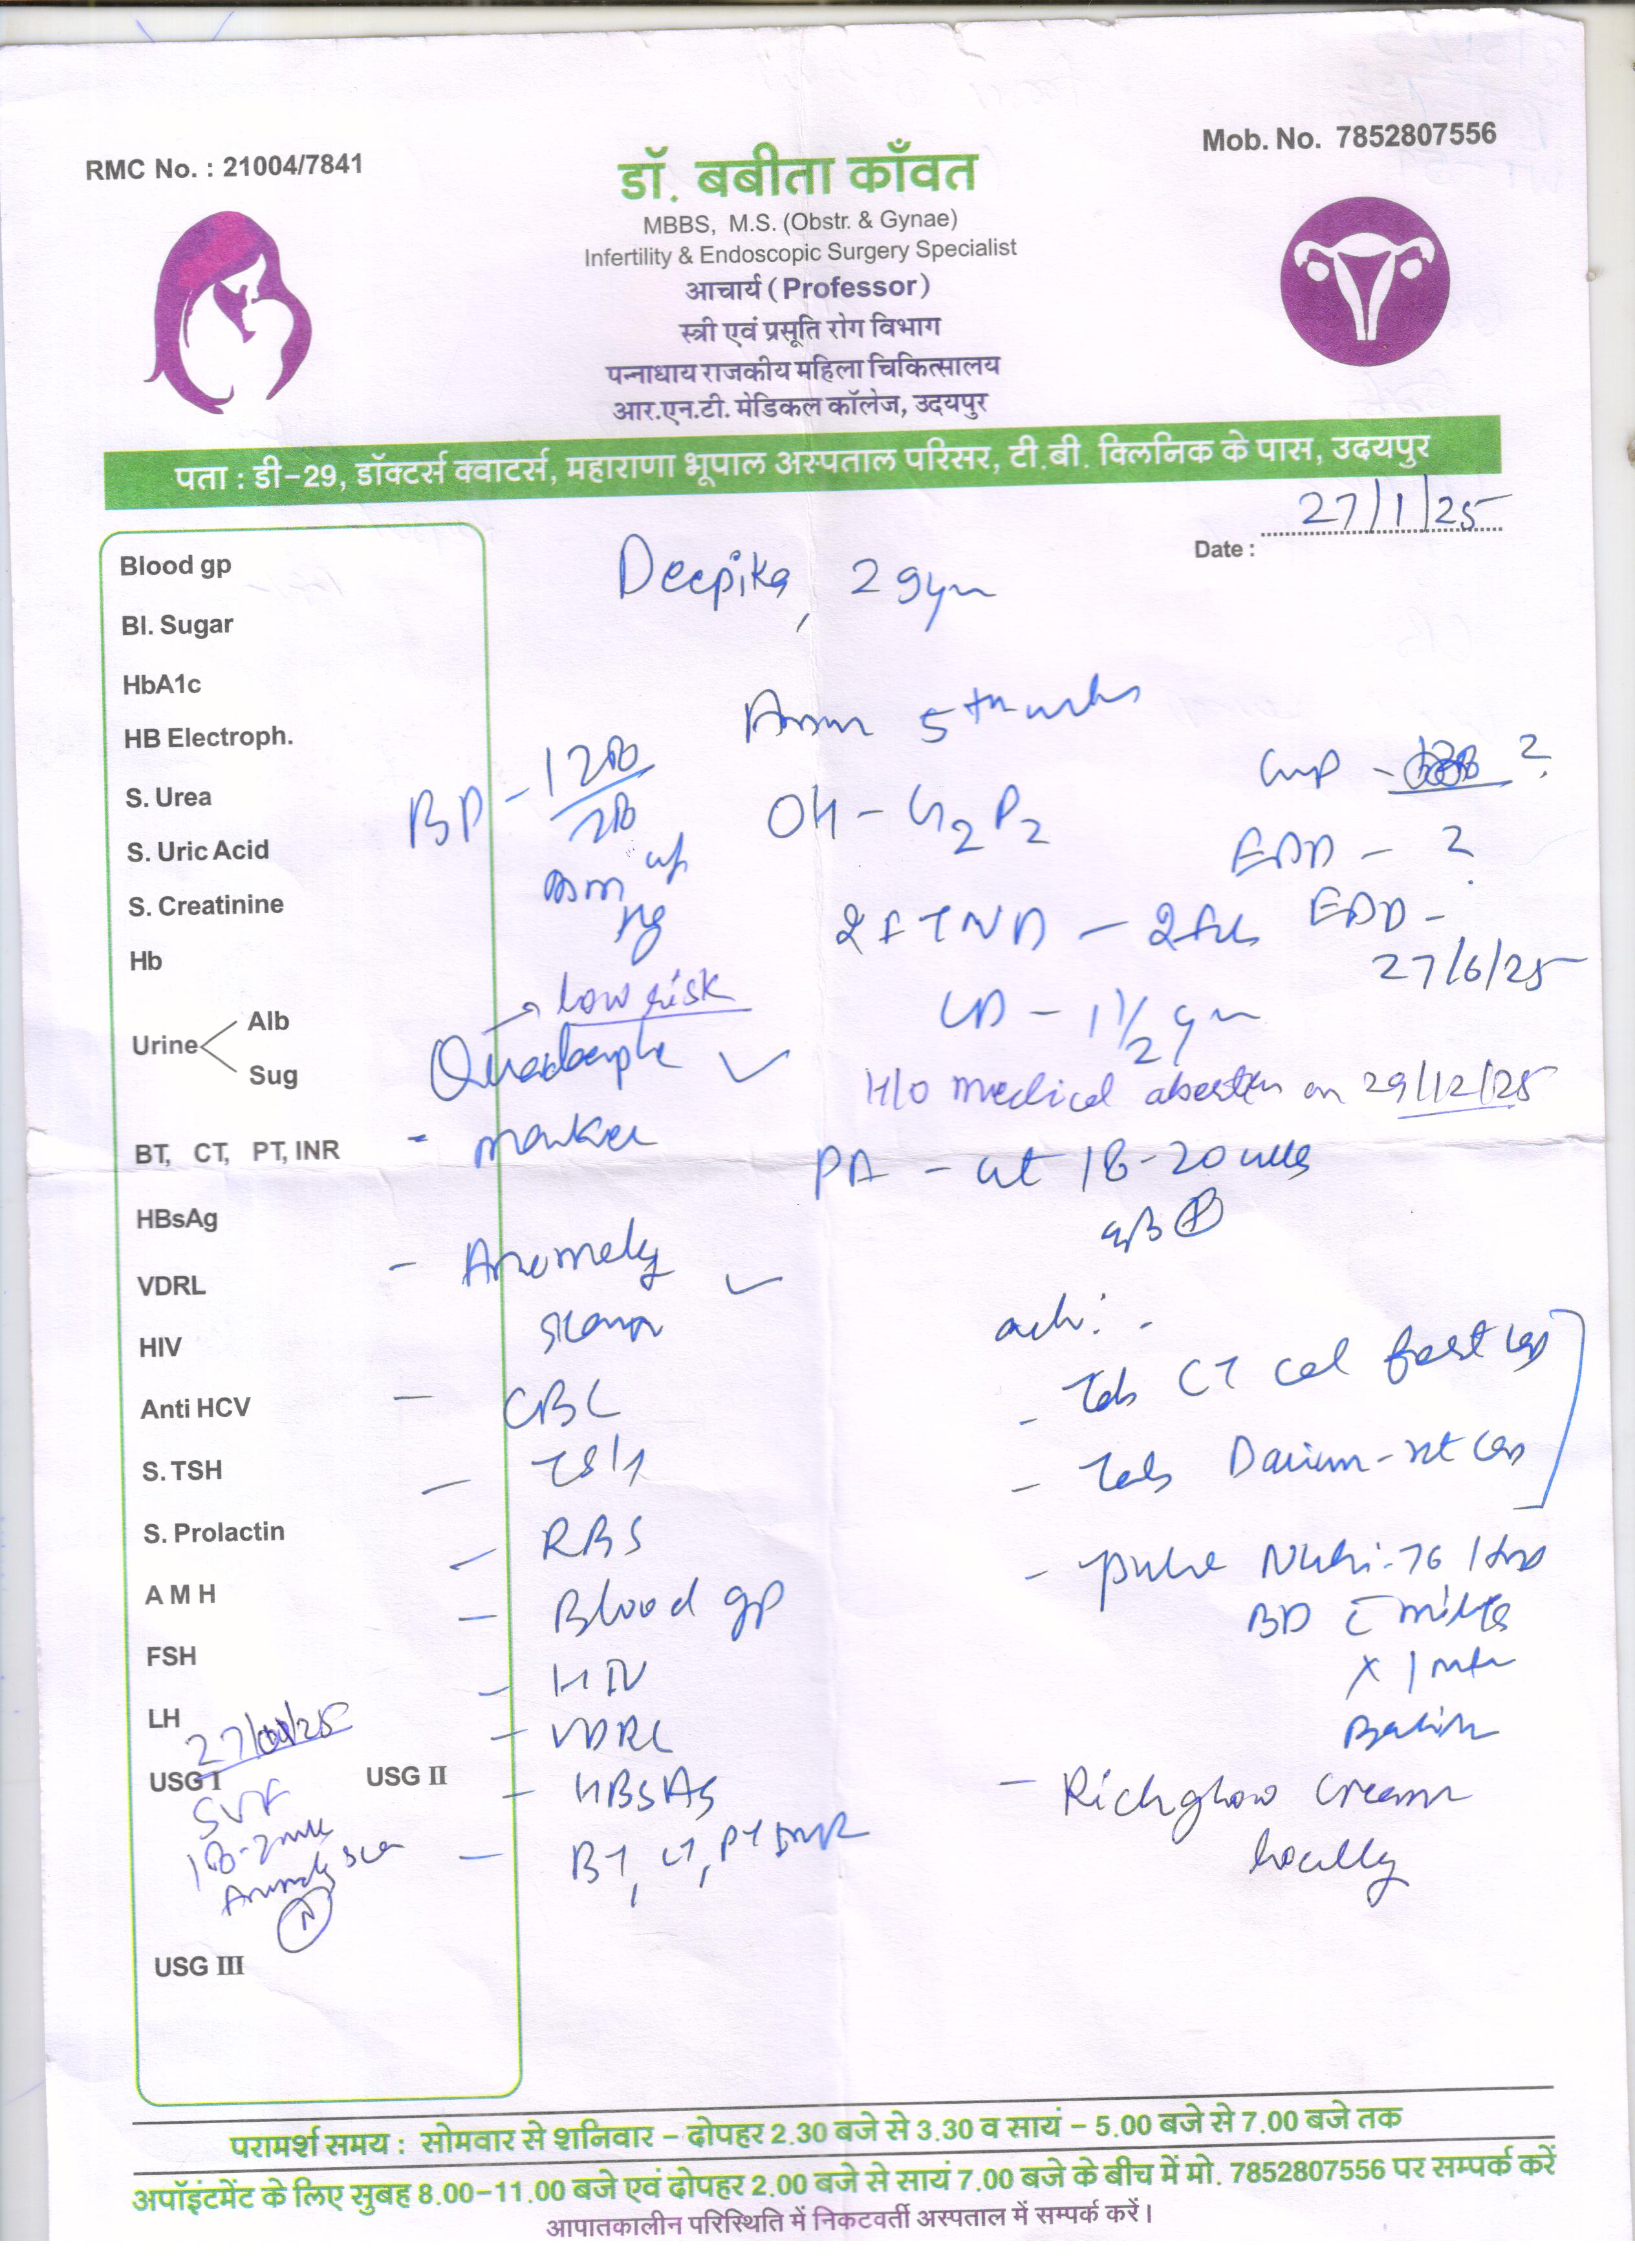 RMC No. : 21004/7841
Mob. No. 7852807556
डॉ. बबीता काँवत
MBBS, M.S. (Obstr. & Gynae)
Infertility & Endoscopic Surgery Specialist
आचार्य ( Professor )
स्त्री एवं प्रसूति रोग विभाग
पन्नाधाय राजकीय महिला चिकित्सालय
आर.एन.टी. मेडिकल कॉलेज, उदयपुर
पता : डी-29, डॉक्टर्स क्वाटर्स, महाराणा भूपाल अस्पताल परिसर, टी.बी. क्लिनिक के पास, उदयपुर
Date : 27/1/25
Deepika, 29yrs
Blood gp
Bl. Sugar
HbA1c
HB Electroph.
S. Urea
S. Uric Acid
S. Creatinine
Hb
Urine
Alb
Sug
BT, CT, PT, INR
HBsAg
VDRL
HIV
Anti HCV
S. TSH
S. Prolactin
A M H
FSH
LH
USG I
USG II
SLF
18-20wk
Anomaly Scan
N
USG III
BP -
low risk
Quadruple
- marker
- Anomaly
scan
- CBC
- TSH
- RBS
- Blood gp
- HIV
- VDRL
- HBsAg
- BT, CT, PT INR
5th
LMP - ?
OH - G2P2
EDD - ?
2 FTND -
EDD -
27/6/25
LD - 1 1/2 yrs
H/O medical abortion on 29/12/25
PA - ut 18-20 wks
adv: -
- Tab CT cal
- Tab
- pulse
BD c milk
x 1 mth
- Richglow cream
locally
परामर्श समय : सोमवार से शनिवार – दोपहर 2.30 बजे से 3.30 व सायं – 5.00 बजे से 7.00 बजे तक
अपॉइंटमेंट के लिए सुबह 8.00-11.00 बजे एवं दोपहर 2.00 बजे से सायं 7.00 बजे के बीच में मो. 7852807556 पर सम्पर्क करें
आपातकालीन परिस्थिति में निकटवर्ती अस्पताल में सम्पर्क करें।